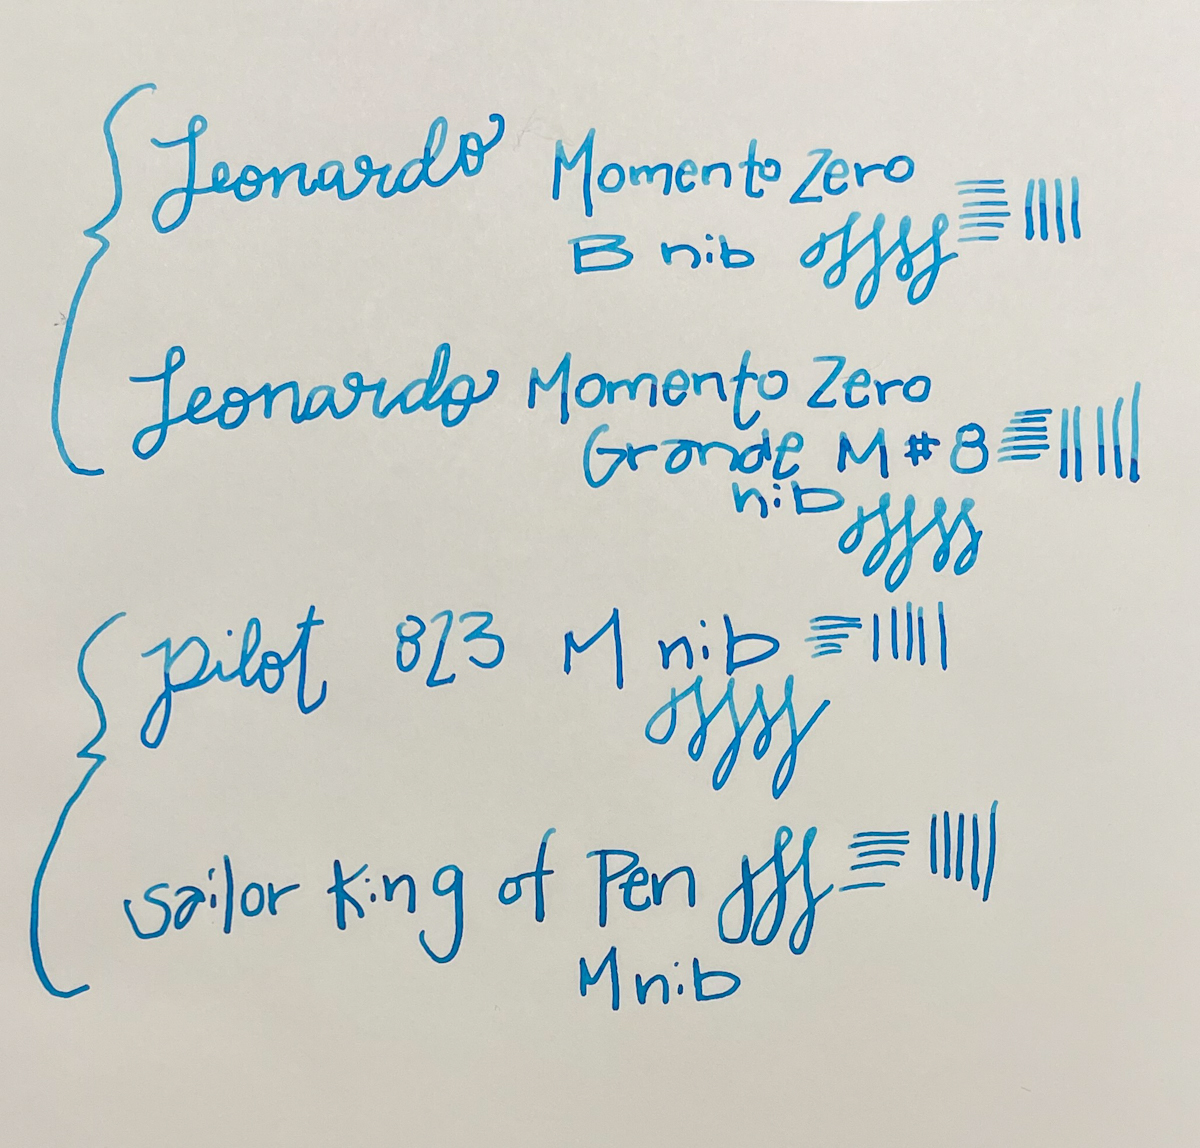 Leonardo Momento Zero
B nib
Leonardo Momento Zero
Grande M #8
nib
pilot 823 M nib
sailor King of Pen
M nib